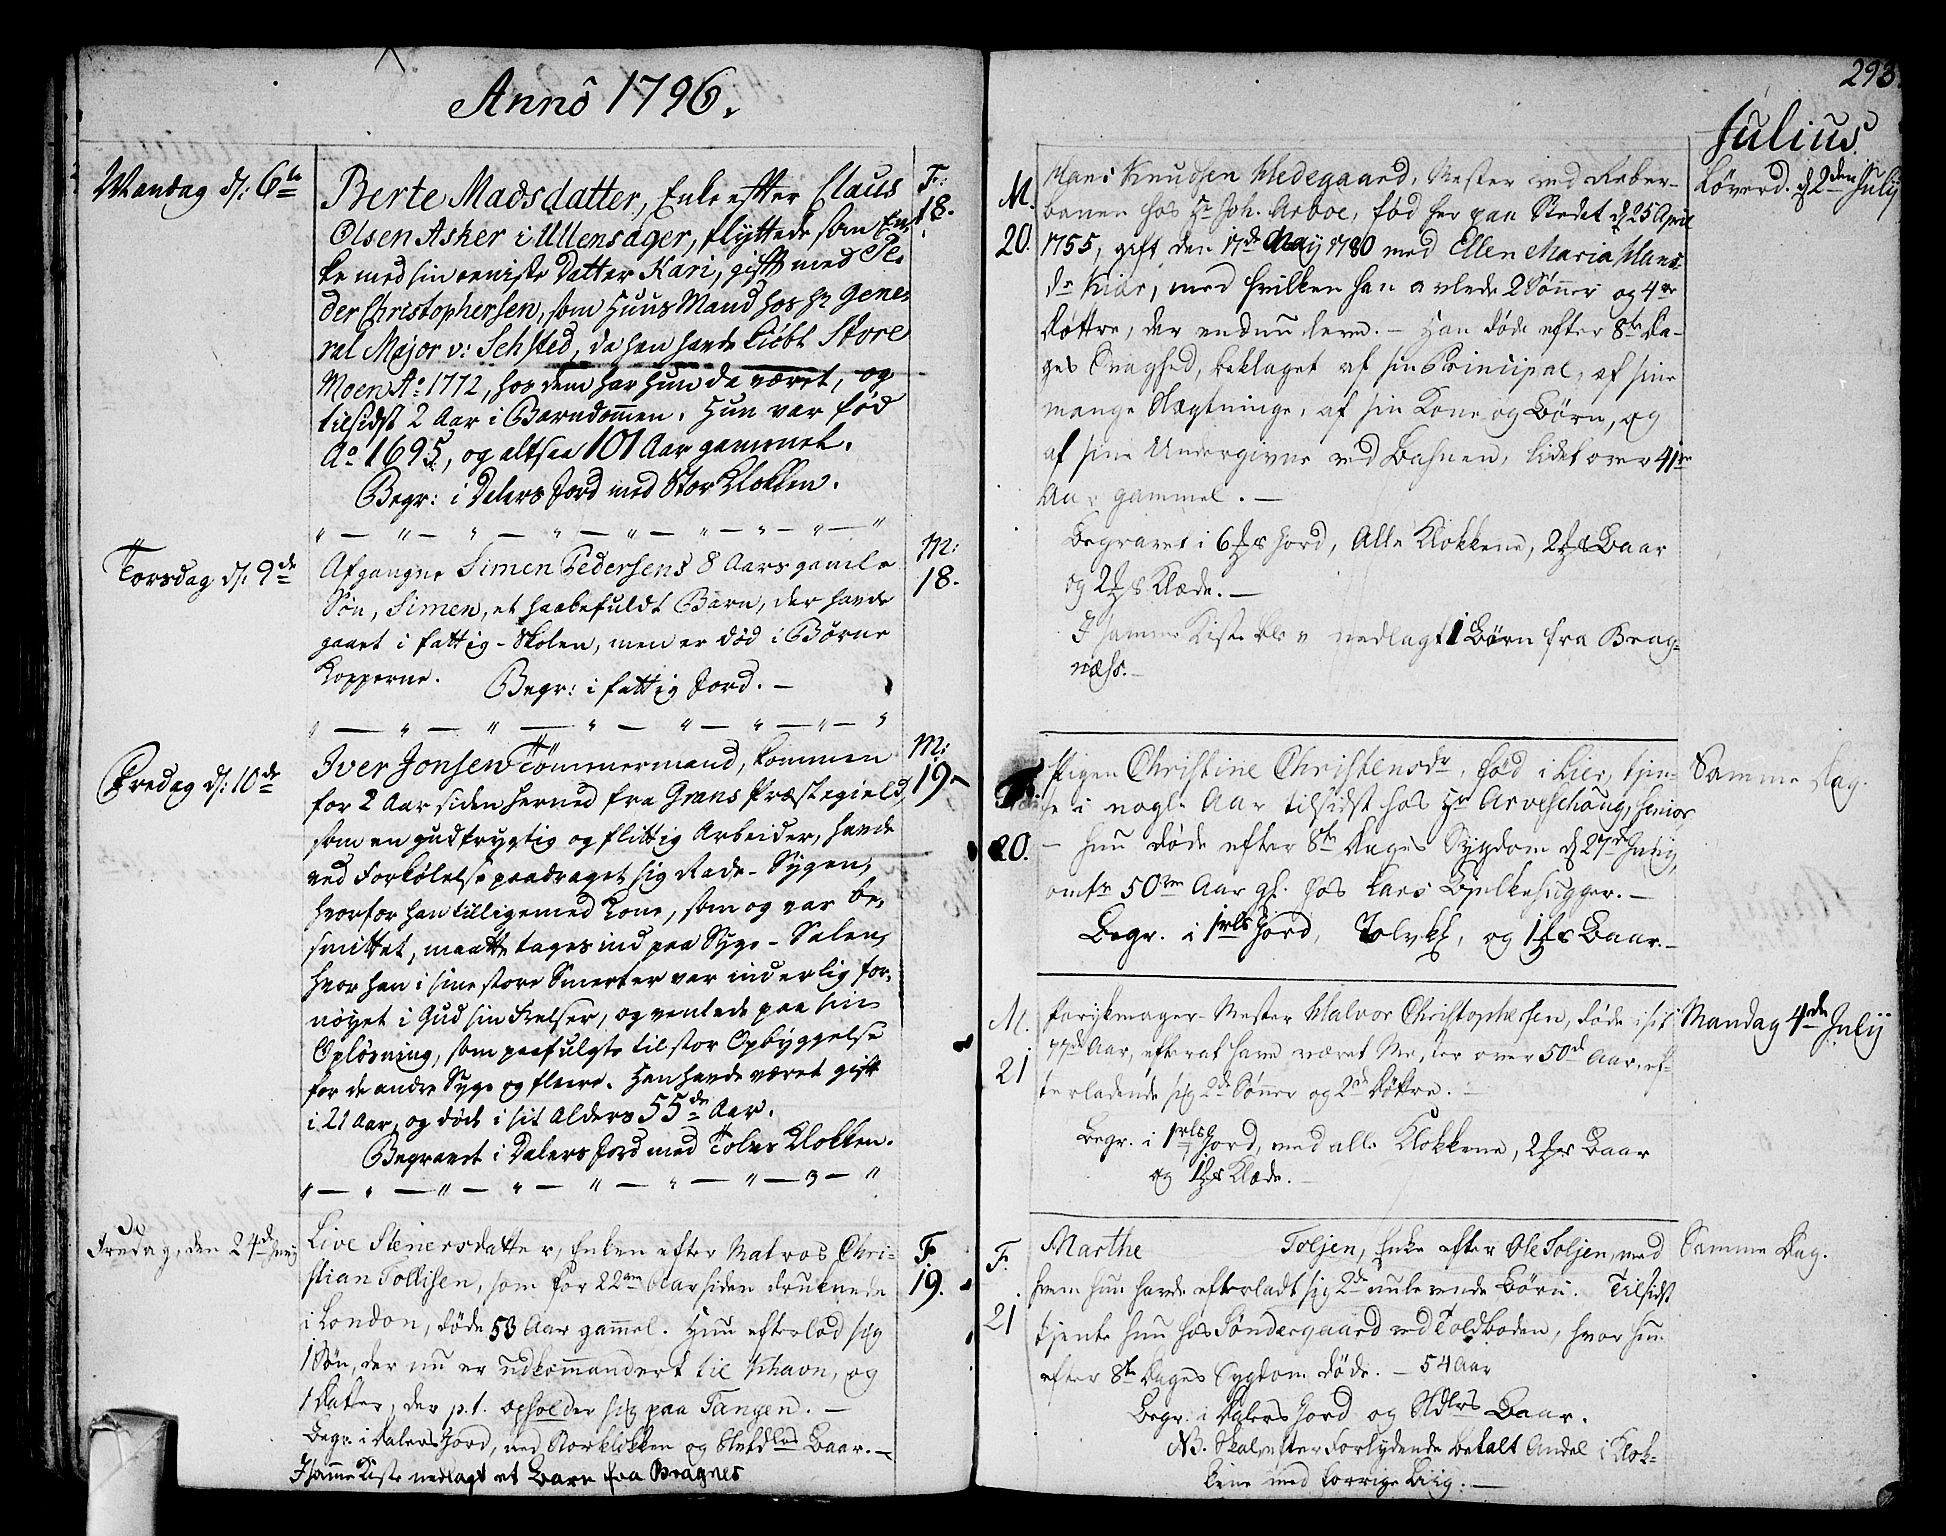 Anno 1796.
Mandag d: 6te
Berte Madsdatter, Enke efter Claus
Olsen Asker i Ullensager, flyttede som En-
ke med sin eeniste Datter Kari, gift med Pe-
der Christophersen, som Huus Mand hos Hr Gene-
ral Major v: Sehsted, da han havde kiøbt Store
Moen Ao 1772, hos dem har hun da været, og
tilsidst 2 Aar i Barndommen. Hun var fød
Ao 1695, og altsaa 101 Aar gammel.
Begr: i Dalers Jord med Stor Klokken.
F:
18.
Torsdag d: 9de
Afgangne Simen Pedersens 8 Aars gamle
Søn, Simen, et haabefuldt Barn, der havde
gaaet i fattig-Skolen, men er død i Børne
Kopperne.
Begr: i fattig Jord.
M:
18.
Fredag d: 10de
Iver Jonsen Tømmermand, kommen
for 2 Aar siden herned fra Grans Præstegield,
som en gudfrygtig og flittig Arbeider, havde
ved Forkølelse paadraget sig Rade-Sygen,
hvorfor han tilligemed Kone, som og var be-
smittet, maatte tages ind paa Syge-Salen,
hvor han i sine store Smerter var inderlig for-
nøyet i Gud sin Frelser, og ventede paa sin
Opløsning, som paafulgte til stor Opbyggelse
for de andre Syge og fleere. Han havde været gift
i 21 Aar, og døde i sit Alders 55de Aar.
Begravet i Dalers Jord med Tolv Klokken.
M:
19
Fredag, den 24de Junij
Live Stenersdatter, Enken efter Matros Chri-
stian Tollisen, som for 22 Aar siden druknede
i London, døde 53 Aar gammel. Hun efterlod sig
1 Søn, der nu er udkommandert til Khavn, og
1 Datter, der p.t. opholder sig paa Tangen.
Begr. i Dalers Jord, med Storklokken og Baar.
I samme Kiste nedlagt et Barn fra Bragnes
F.
19.
293
Julius
Løverd. d 2den Julij
M.
20.
Hans Knudsen Hedegaard, Mester ved Reber-
banen hos Hr Joh. Arboe, fød her paa Stedet d 25 April
1755, gift den 17de May 1780 med Ellen Maria Hans-
dr Kiær, med hvilken han avlede 2 Sønner og 4re
Døttre, der endnu leve. Han døde efter 8te Da-
ges Svaghed, beklaget af sin Principal, af sine
mange Slægtninge, af sin Kone og Børn, og
af sine Undergivne ved Bahnen, lidet over 41
Aar gammel.
Begravet i 6 Jord, Alle Klokkene, 2 Baar
og 2 Klæde.
I samme Kiste blev nedlagt 1 Børn fra Brag-
næss.
Samme Dag.
20.
Pigen Christine Christensdr, fød i Lier, tjen-
te i nogle Aar tilsidst hos Hr Arveschoug, Senior,
hun døde efter 8te Dages Sygdom d 27de Junij,
omtr 50 Aar gl. hos Lars Bjelkehugger.
Begr. i 1rls Jord, Tolvkl, og 1 Baar.
Mandag 4de Julij
M.
21
Parykmager-Mester Halvor Christophersen, døde i sit
77de Aar, efter at have været Mester over 50 Aar, ef-
terladende sig 2de Sønner og 2de Døttre.
Begr. i 1rls Jord, med alle Klokkene, 2 Baar
og 1 Klæde.
Samme Dag.
F.
21
Marthe Toljen, Enke efter Ole Toljen, med
hvem hun havde efterladt sig 2de nulevende Børn. Tilsidst
tjente hun hos Søndergaard ved Toldboden, hvor hun
efter 8te Dages Sygdom døde. 54 Aar
Begr. i Dalers Jord og Baar.
NB. Skal, efter Forlydende betalt Andel i Klok-
kene med forrige Liig.